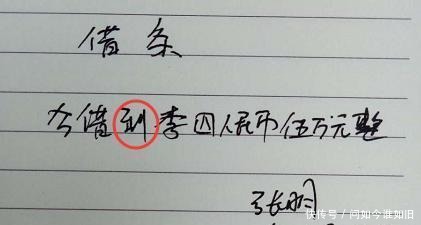 借条
今借到李四人民币伍万元整
张明
快传号/问如今谁如旧